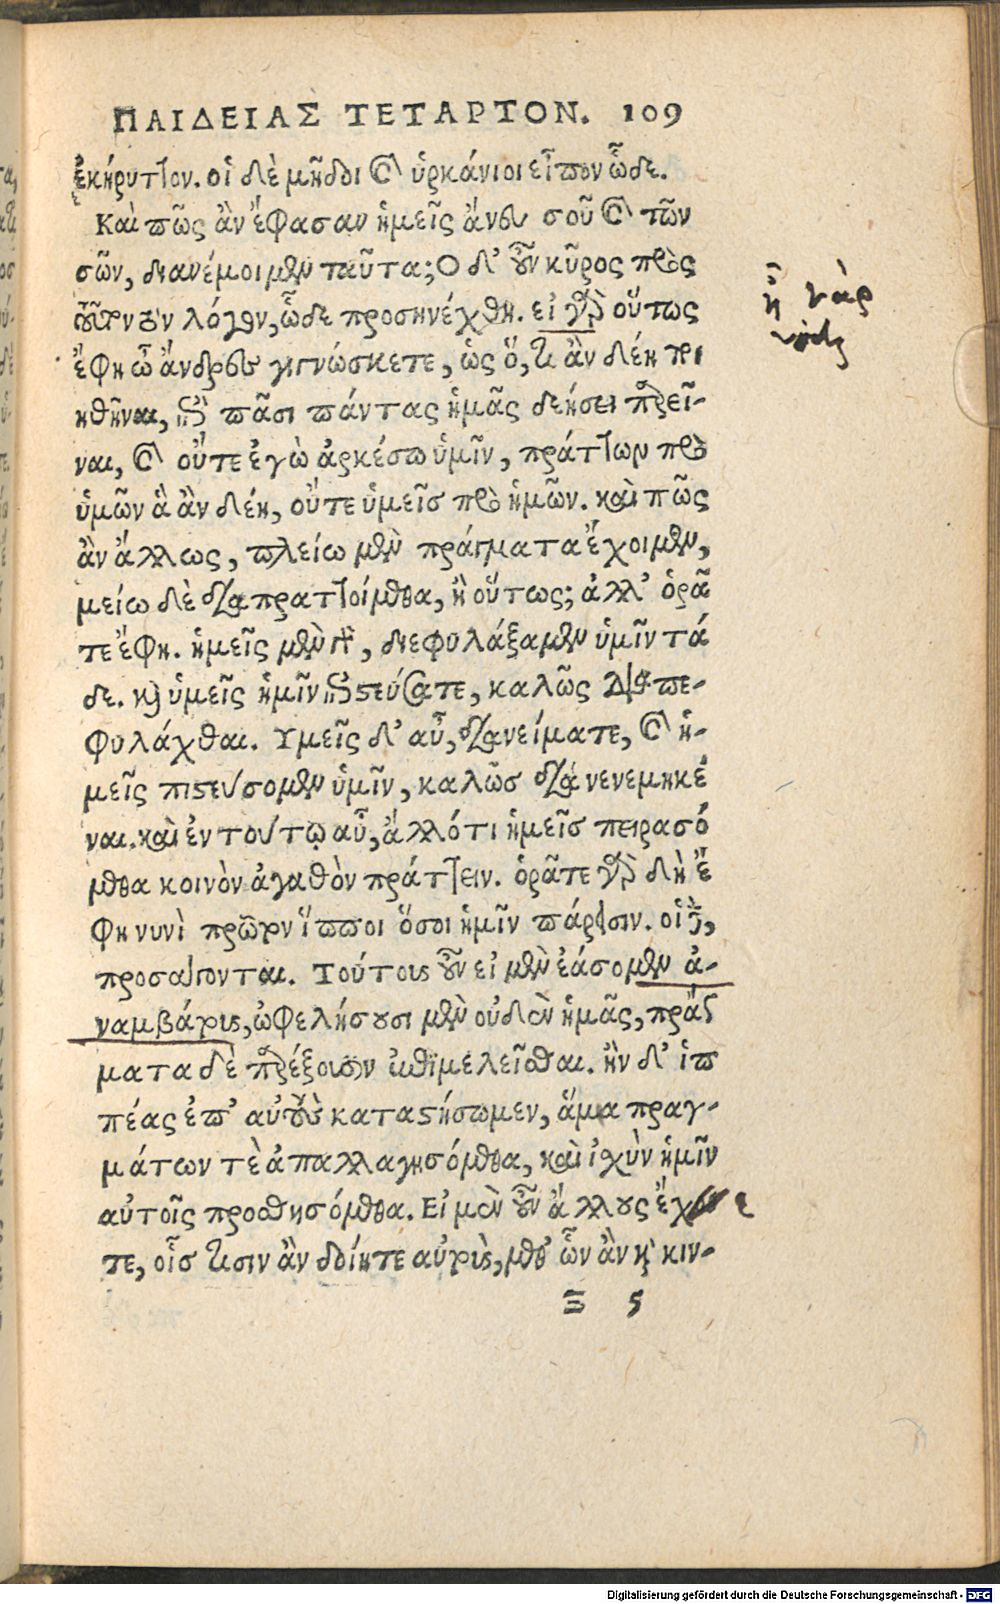 ΠΑΙΔΕΙΑΣ ΤΕΤΑΡΤΟΝ. 109
ἐκήρυττον. οἱ δὲ μῆδοι καὶ ὑρκάνιοι εἶπον ὧδε.
Καὶ πῶς ἂν ἔφασαν ἡμεῖς ἄνευ σοῦ καὶ τῶν
σῶν, διανέμοιμεν ταῦτα; Ο δ' οὖν κῦρος πρὸς
τοῦτον τὸν λόγον, ὧδε προσηνέχθη. εἰ γὰρ οὕτως
ἔφη ὦ ἄνδρες γιγνώσκετε, ὡς ὅ, τι ἂν δέῃ
ηθῆναι, ἐπὶ πᾶσι πάντας ἡμᾶς δεήσει παρεῖ-
ναι, καὶ οὔτε ἐγὼ ἀρκέσω ὑμῖν, πράττων πρὸ
ὑμῶν ἃ ἂν δέῃ, οὔτε ὑμεῖς πρὸ ἡμῶν. καὶ πῶς
ἂν ἄλλως, πλείω μὲν πράγματα ἔχοιμεν,
μείω δὲ διαπραττοίμεθα, ἢ οὕτως; ἀλλ' ὁρᾶ
τε ἔφη. ἡμεῖς μὲν γὰρ, διεφυλάξαμεν ὑμῖν τά
δε. καὶ ὑμεῖς ἡμῖν ἐπιστεύσατε, καλῶς διαπε-
φυλάχθαι. Υμεῖς δ' αὖ, διανείματε, καὶ ἡ-
μεῖς πιστεύσομεν ὑμῖν, καλῶς διανενεμηκέ
ναι. καὶ ἐν τούτῳ αὖ, ἄλλό τι ἡμεῖς πειρασό
μεθα κοινὸν ἀγαθὸν πράττειν. ὁρᾶτε γὰρ δὴ ἔ
φη νυνὶ πρῶτον ἵπποι ὅσοι ἡμῖν πάρεισιν. οἱ δὲ,
προσάγονται. Τούτους οὖν εἰ μὲν ἐάσομεν ἀ-
ναμβάτους, ὠφελήσουσι μὲν οὐδὲν ἡμᾶς, πράγ
ματα δὲ παρέξουσιν ἐπιμελεῖσθαι. ἢν δ' ἱπ
πέας ἐπ' αὐτοὺς καταστήσωμεν, ἅμα πραγ-
μάτων τὲ ἀπαλλαγησόμεθα, καὶ ἰσχὺν ἡμῖν
αὐτοῖς προσθησόμεθα. Εἰ μὲν οὖν ἄλλους ἔχε
τε, οἷς τισιν ἂν δοίητε αὐτοὺς, μεθ' ὧν ἂν καὶ κιν-
Ξ 5
ἢ γὰρ
Digitalisierung gefördert durch die Deutsche Forschungsgemeinschaft - DFG